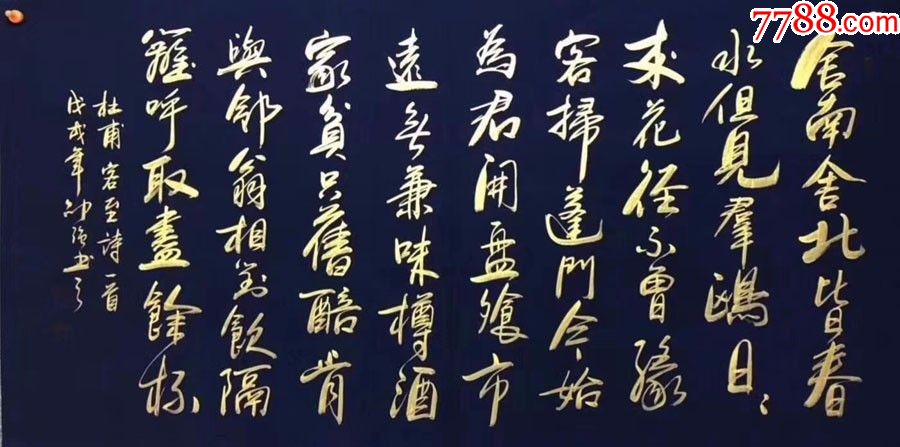 7788.com
舍南舍北皆春
水但見羣鷗日〻
来花徑不曾緣
客掃蓬門今始
為君開盤飧市
遠無兼味樽酒
家貧只舊醅肯
與鄰翁相對飲隔
籬呼取盡餘杯
杜甫客至詩一首
戊戌年 书